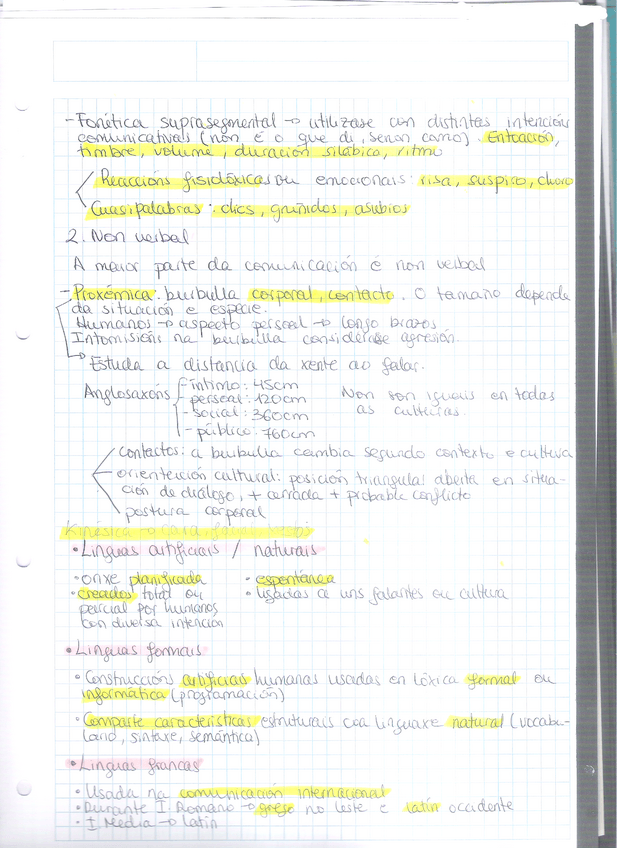 - Fonética suprasegmental → utilízase con distintas intencións
comunicativas (non é o que di, senon como). Entoación,
timbre, volume, duración silábica, ritmo
Reaccións fisiolóxicas ou emocionais: risa, suspiro, choro
Cuasipalabras: clics, gruñidos, asubíos
2. Non verbal
A maior parte da comunicación é non verbal
- Proxémica. burbulla corporal, contacto. O tamaño depende
da situación e especie.
Humanos → aspecto persoal → longo brazos
Intomisións na burbulla considérase agresión.
→ Estuda a distancia da xente ao falar.
Anglosaxóns
- íntimo: 45cm
- persoal: 120cm
- social: 360cm
- público: 760cm
Non son iguais en todas
as culturas.
contactos: a burbulla cambia segundo contexto e cultura
orientación cultural: posición triangular aberta en situa-
ción de diálogo, + cerrada + probable conflicto
postura corporal
Kinésica → cara, falar, xestos
• Linguas artificiais / naturais
• orixe planificada
• creadas total ou
parcial por humanos
con diversa intención
• espontánea
• usadas a uns falantes ou cultura
• Linguas formais
• Construccións artificias humanas usadas en lóxica formal ou
informática (programación)
• Comparte características estruturais coa linguaxe natural (vocabu-
lario, sintaxe, semántica)
• Linguas francas
• Usada na comunicación internacional
• Durante I. Romano → grego no leste e latín occidente
• I. Media → latín